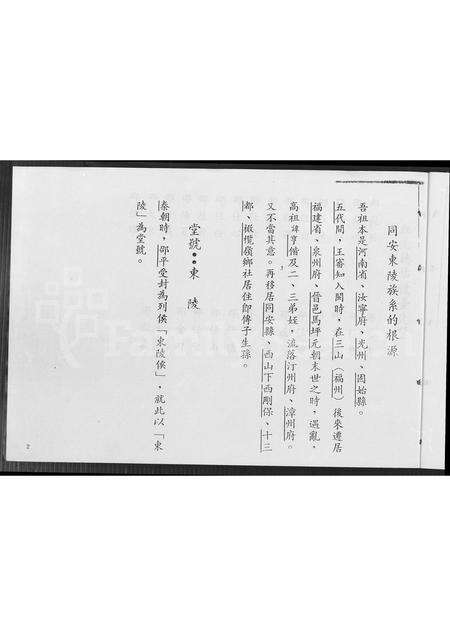 同安東陵族系的根源
吾祖本是河南省、汝寧府、光州、固始縣。
五代間，王審知入閩時，在三山（福州）後來遷居
福建省、泉州府、晉邑馬坪元朝末世之時，遇亂，
高祖諱亨偕及二、三弟姪，流落汀州府、漳州府。
又不當其意。再移居同安縣、西山下西剛保、十三
都、嶺鄉社居住即傳子生孫。
堂號：東陵
秦朝時，邵平受封為列侯「東陵侯」，就此以「東
陵」為堂號。
2